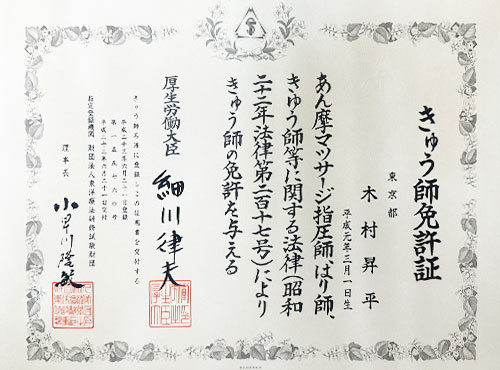 きゅう師免許証
東京都
木村昇平
平成元年三月一日生
あん摩マツサージ指圧師、はり師、
きゅう師等に関する法律(昭和
二十二年法律第二百十七号)により
きゅう師の免許を与える
厚生労働大臣 細川律夫
きゅう師名簿に登録しこの証明書を交付する
平成二十三年六月二十一日交付
指定登録機関 財団法人東洋療法研修試験財団
理事長 小早川隆敏